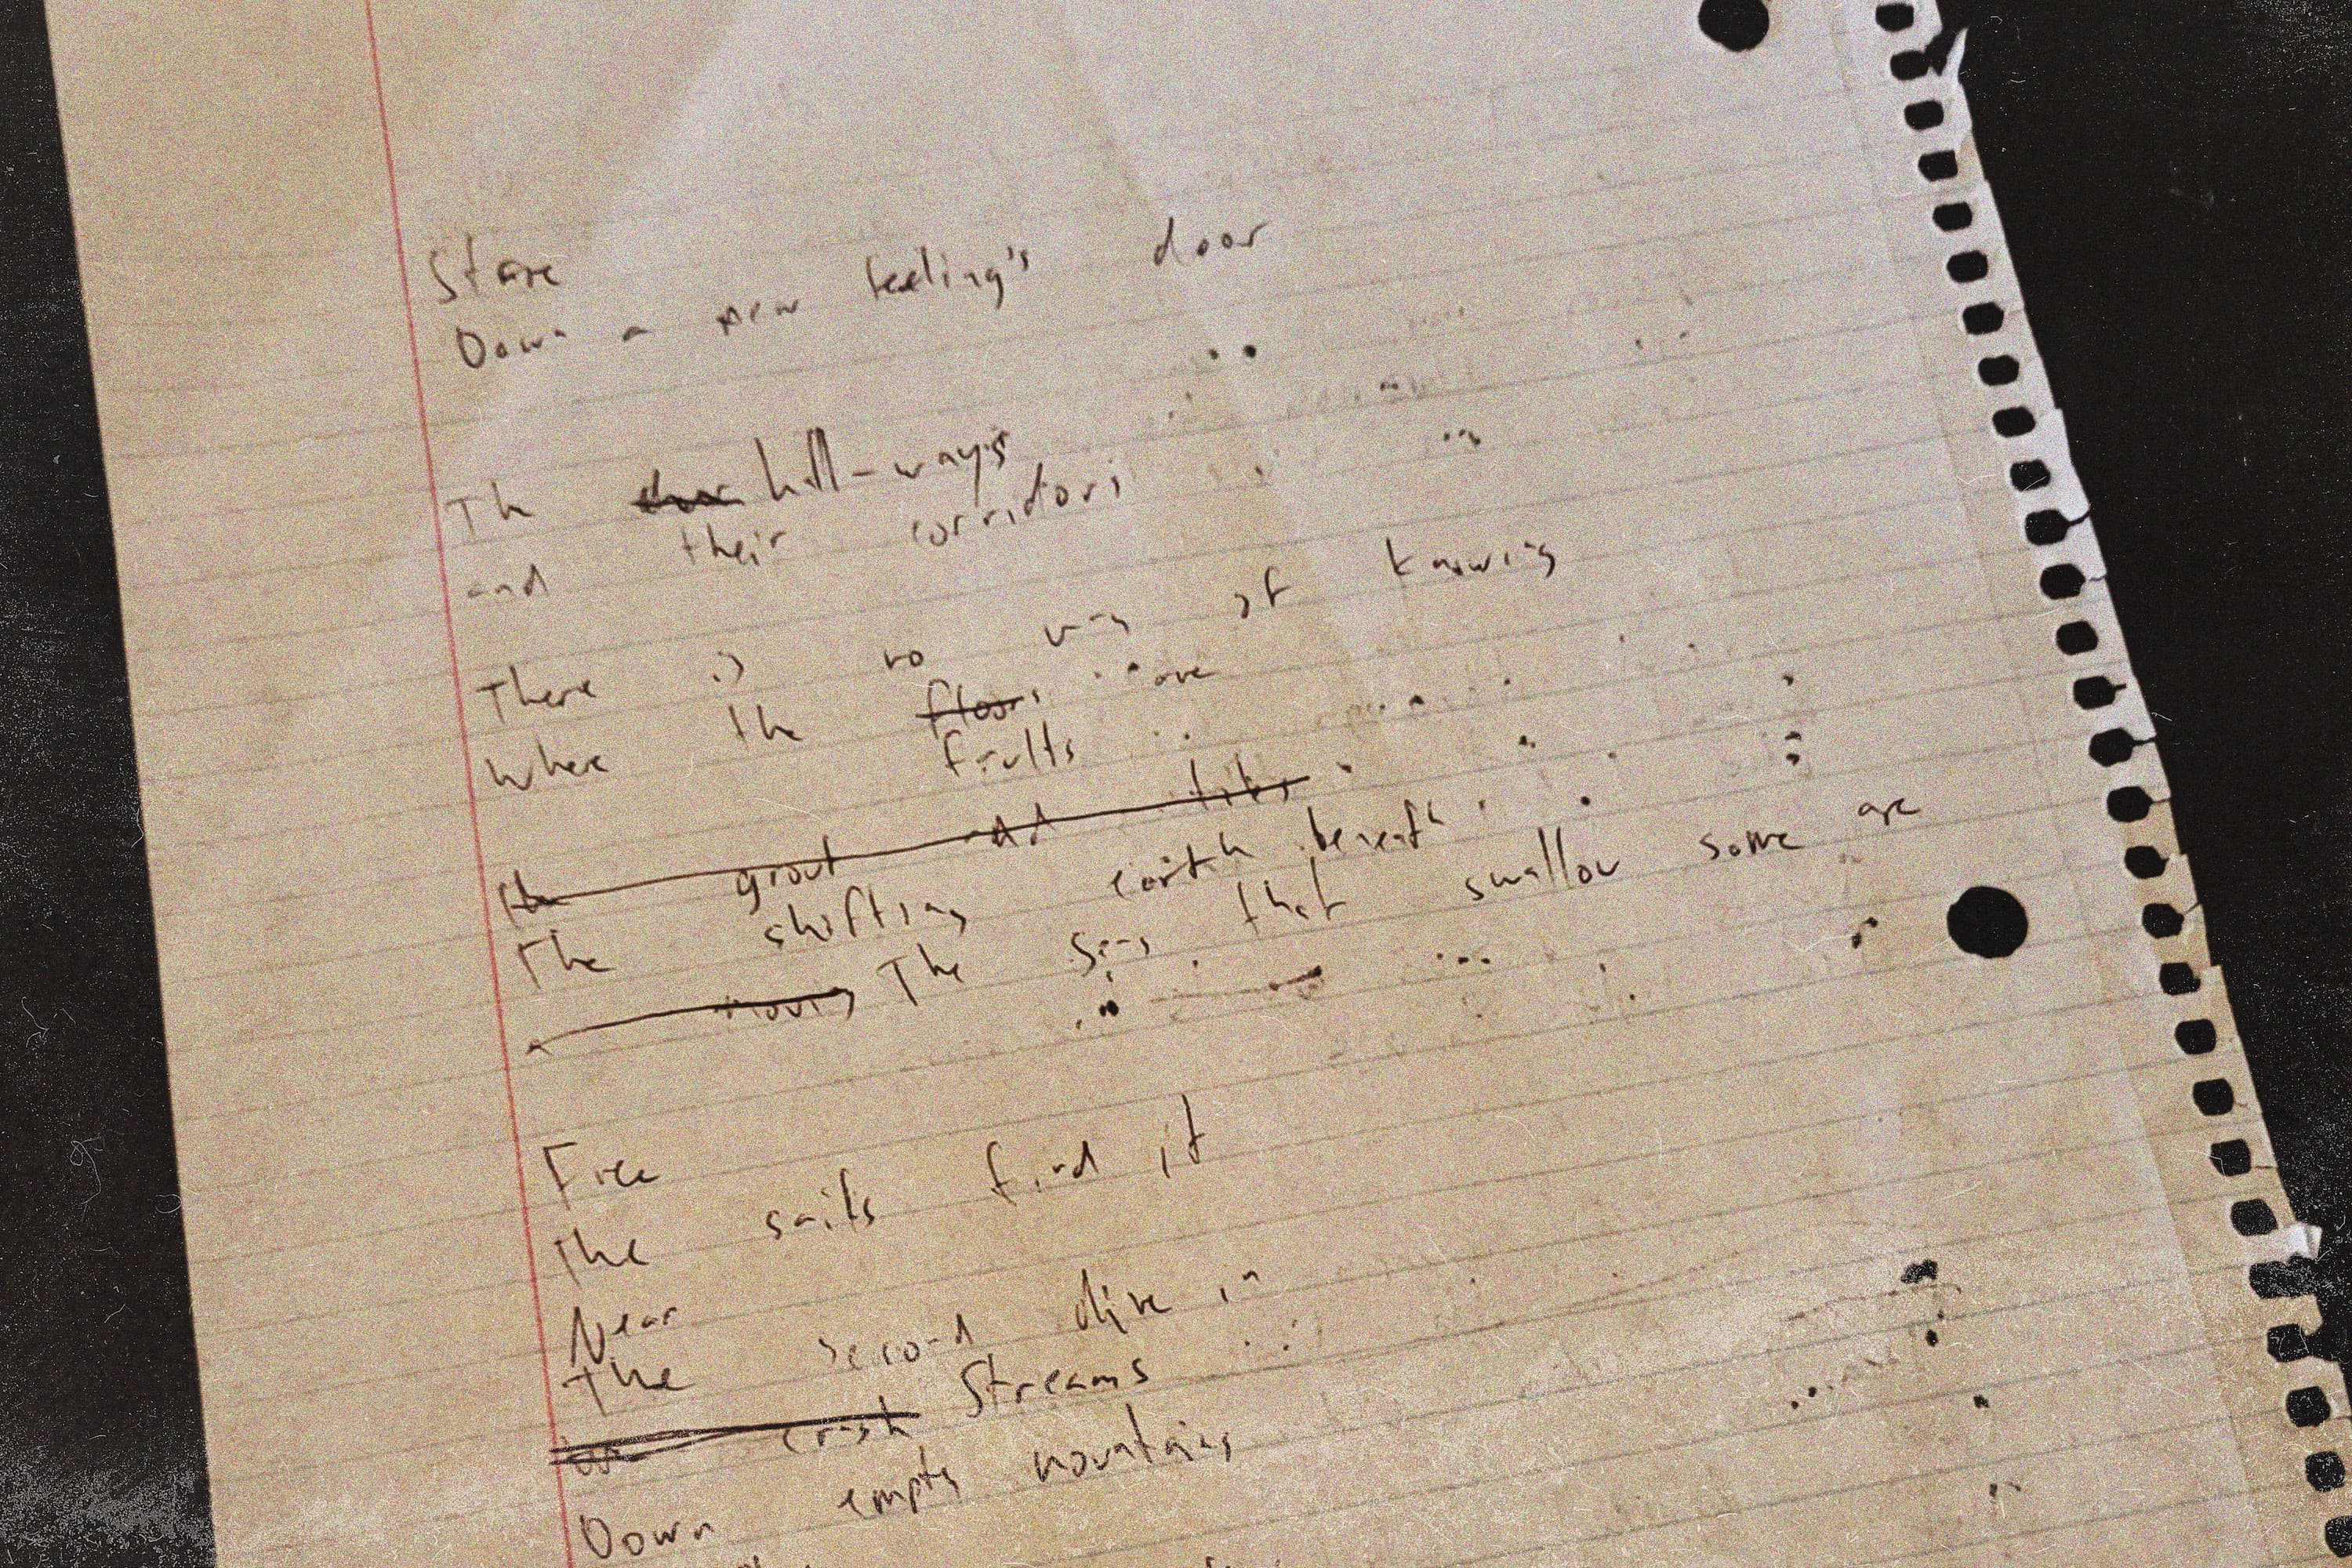 Stare
Down a new feeling's door
The hall-ways
and their corridors
There is no way of knowing
Where the floors are
faults
The grout and tiles
The shifting earth beneath
The that swallow some are
Free
The sails find it
Near
the second dive in
crash Streams
Down empty mountains